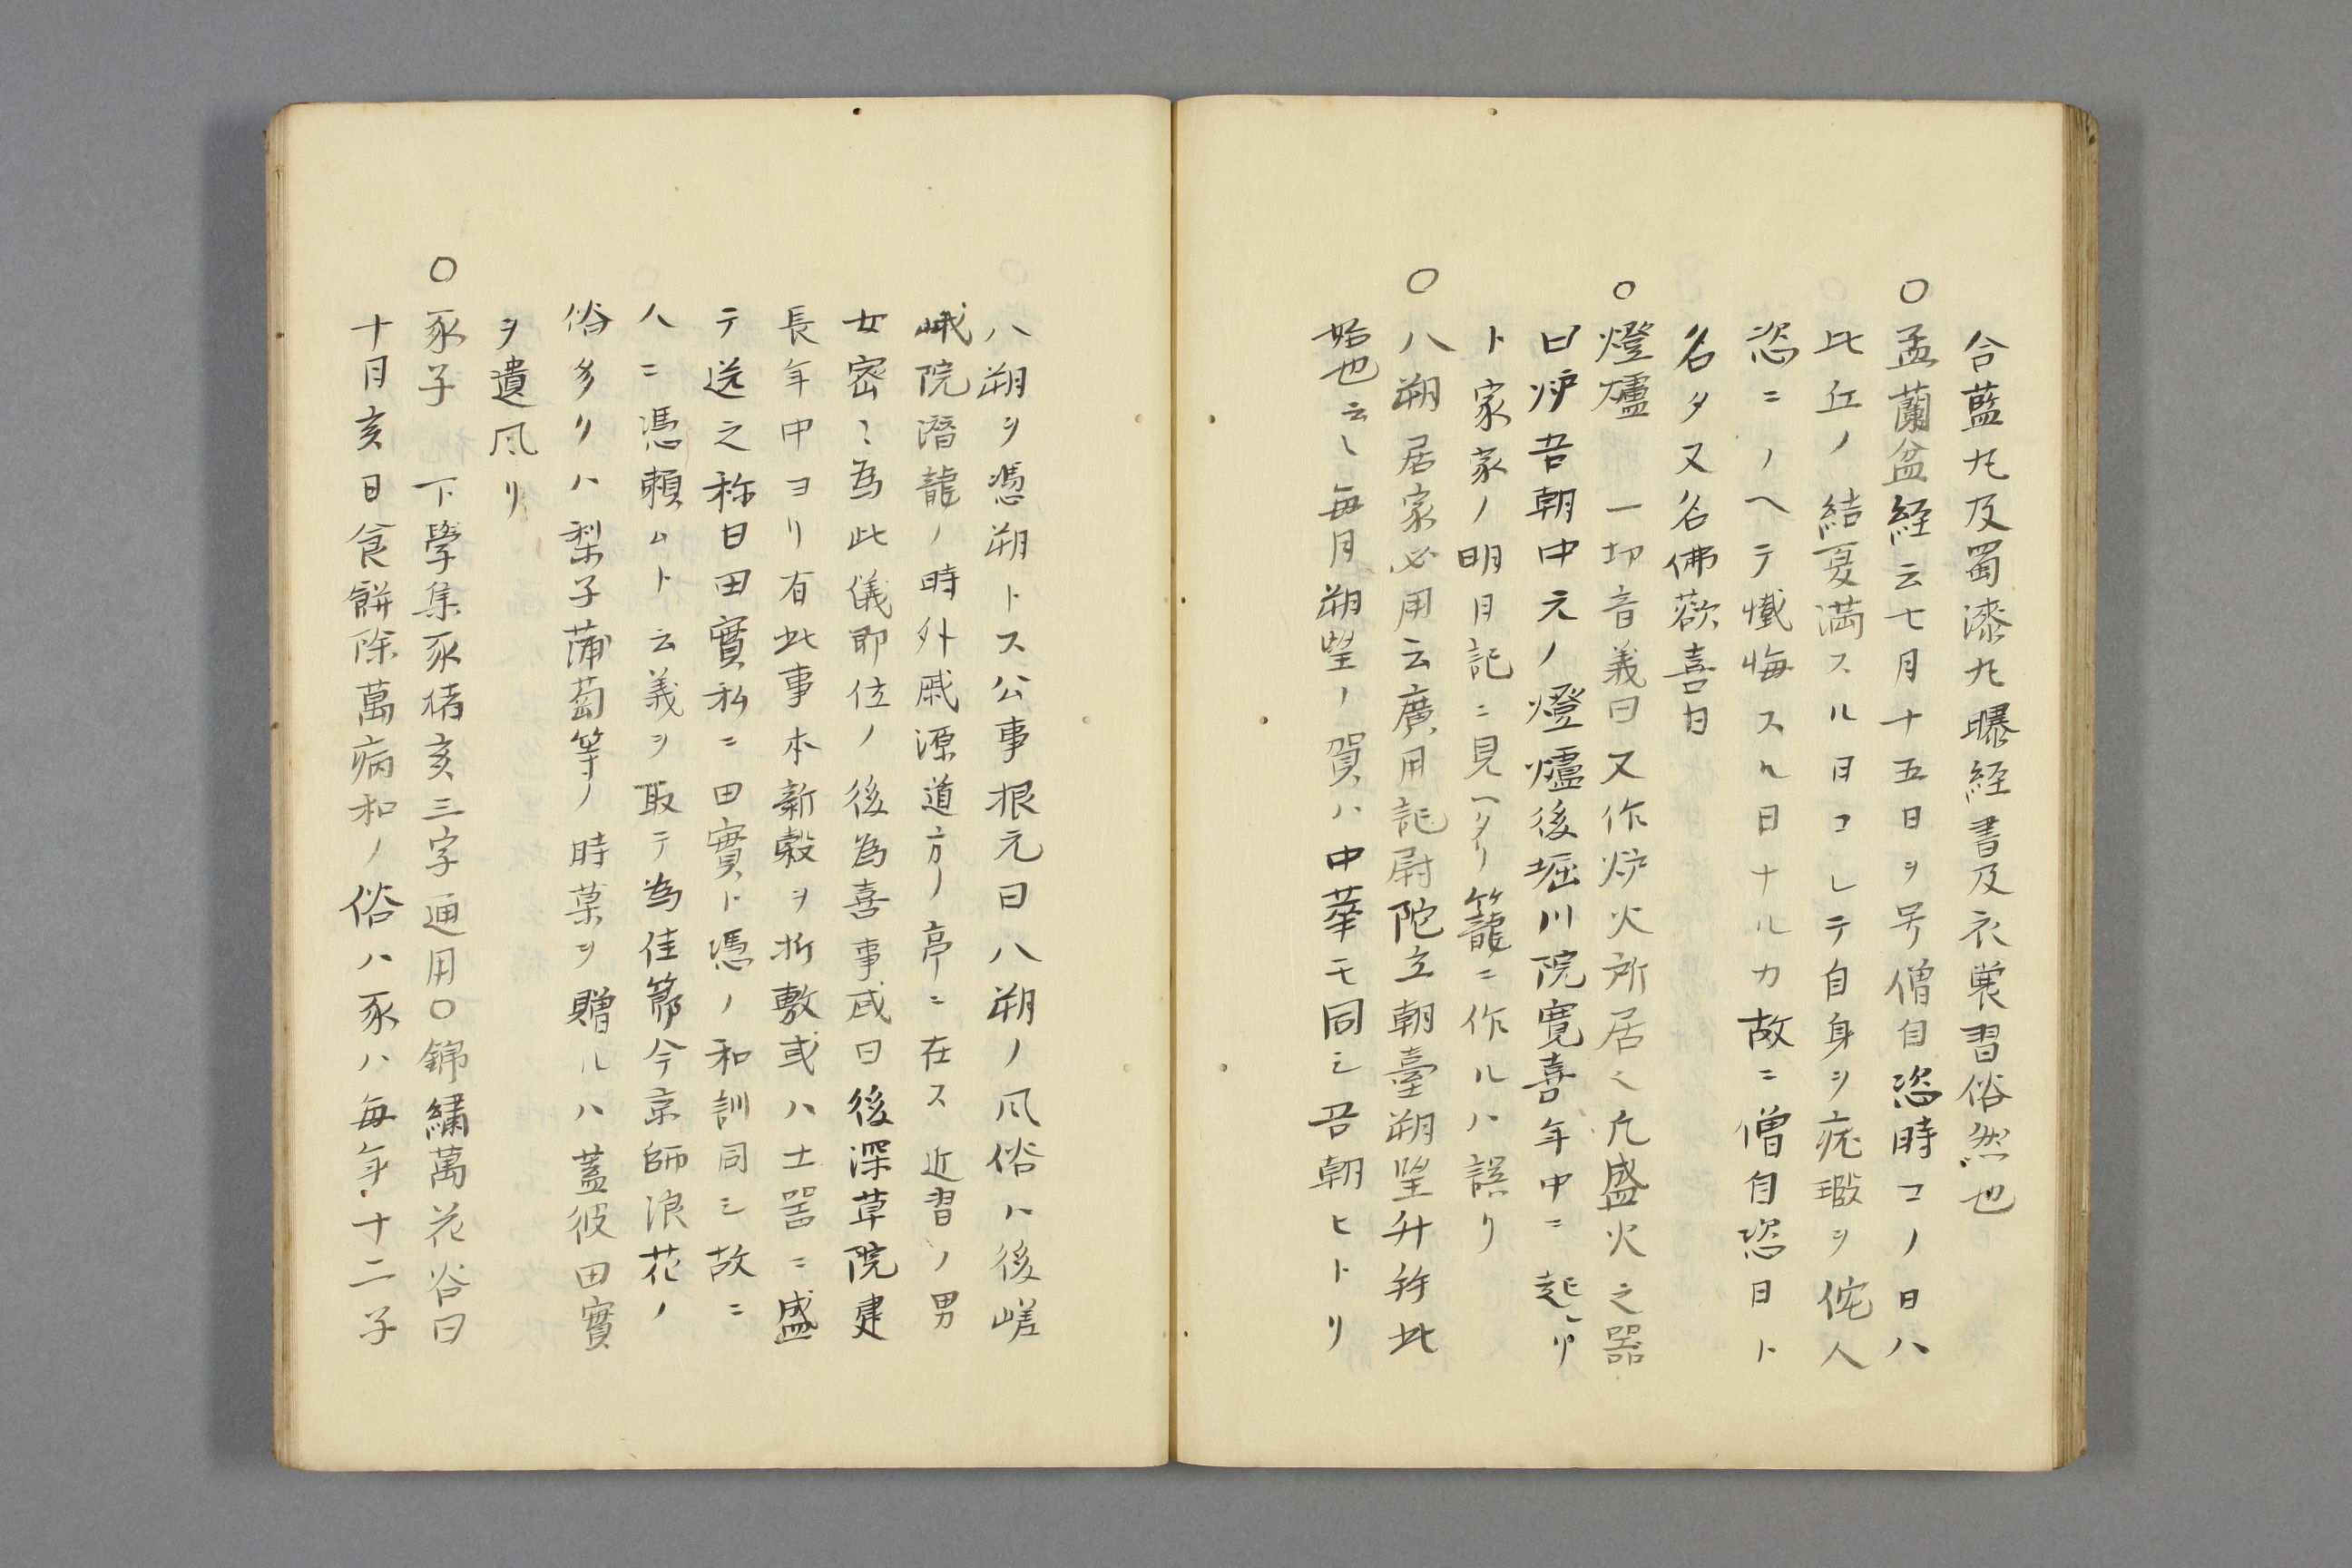 合藍丸及蜀漆丸曝経書及衣裳習俗然也
○盂蘭盆経云七月十五日ヲ号僧自恣時コノ日ハ
比丘ノ結夏満スル日コレテ自身ヲ疵瑕ヲ侘人
恣ニノヘテ懺悔スル日ナルカ故ニ僧自恣日ト
名タ又名佛歓喜日
○燈爐 一切音義曰又作炉火所居也凡盛火之器
曰炉吾朝中元ノ燈爐後堀川院寛喜年中ニ起リ
ト家家ノ明月記ニ見ヘタリ籠ニ作ルハ誤リ
○八朔居家必用云廣用記尉陀立朝臺朔望升拜此
始也云〻毎月朔望ノ賀ハ中華モ同シ吾朝ヒトリ
八朔ヲ憑朔トス公事根元曰八朔ノ風俗ハ後嵯
峨院潜龍ノ時外戚源道方ノ亭ニ在ス近習ノ男
女密〻為此儀即位ノ後為喜事或曰後深草院建
長年中ヨリ有此事本新穀ヲ折敷或ハ土器ニ盛
テ送之称曰田實私ニ田實ト憑ノ和訓同シ故ニ
人ニ憑頼ムト云義ヲ取テ為佳節今京師浪花ノ
俗多リハ梨子蒲萄等ノ時菓ヲ贈ルハ蓋彼田實
ヲ遺風リ
○豕子 下學集豕猪亥三字通用○錦繡萬花谷曰
十月亥日食餅除萬病和ノ俗ハ豕ハ毎年十二子